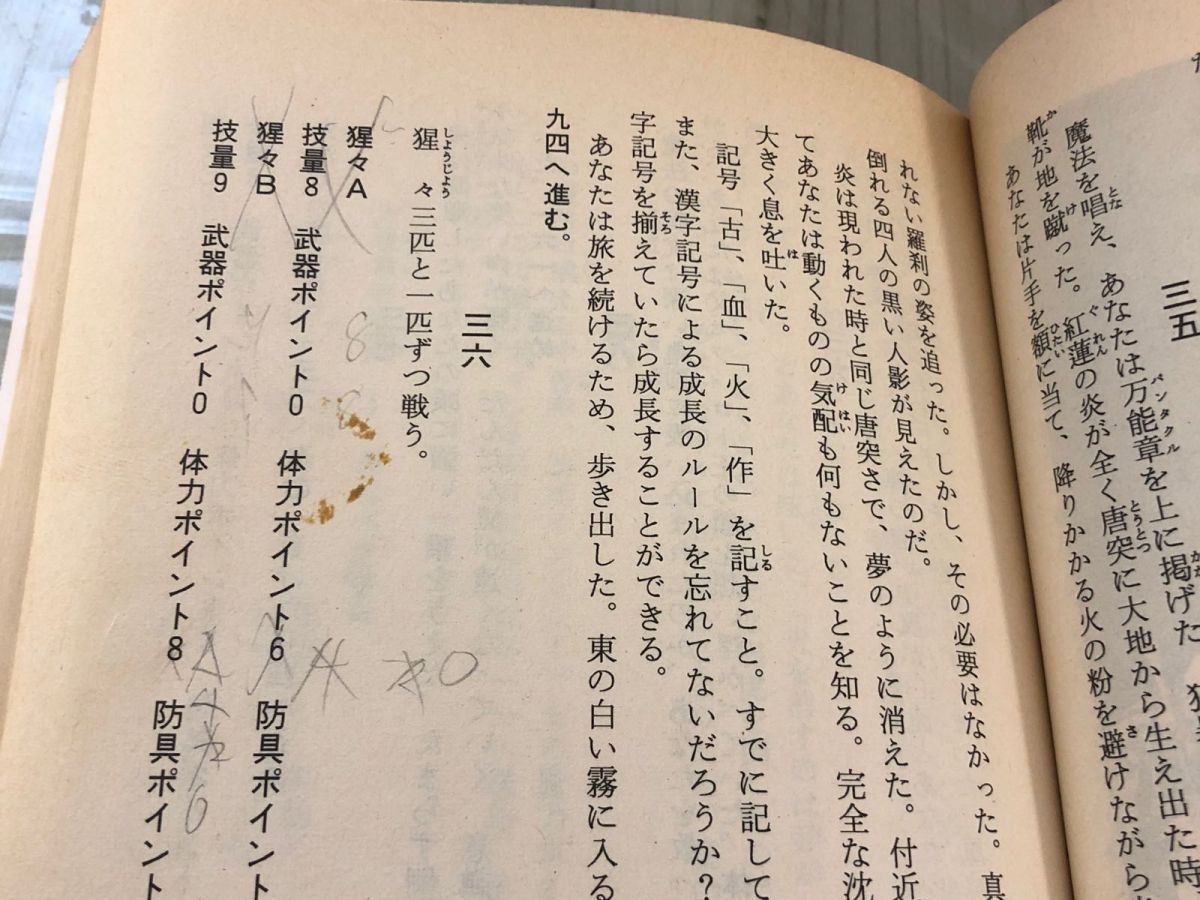 三五
魔法を唱え、あなたは万能章を上に掲げた
靴が地を蹴った。紅蓮の炎が全く唐突に大地から生え出た時
あなたは片手を額に当て、降りかかる火の粉を避けながら
れない羅刹の姿を追った。しかし、その必要はなかった。真
倒れる四人の黒い人影が見えたのだ。
炎は現われた時と同じ唐突さで、夢のように消えた。付近
てあなたは動くものの気配も何もないことを知る。完全な沈
大きく息を吐いた。
記号「古」、「血」、「火」、「作」を記すこと。すでに記して
また、漢字記号による成長のルールを忘れてないだろうか?
字記号を揃えていたら成長することができる。
あなたは旅を続けるため、歩き出した。東の白い霧に入る
九四へ進む。
三六
猩々三匹と一匹ずつ戦う。
猩々A
技量8 武器ポイント0 体力ポイント6 防具ポイント
猩々B
技量9 武器ポイント0 体力ポイント8 防具ポイント